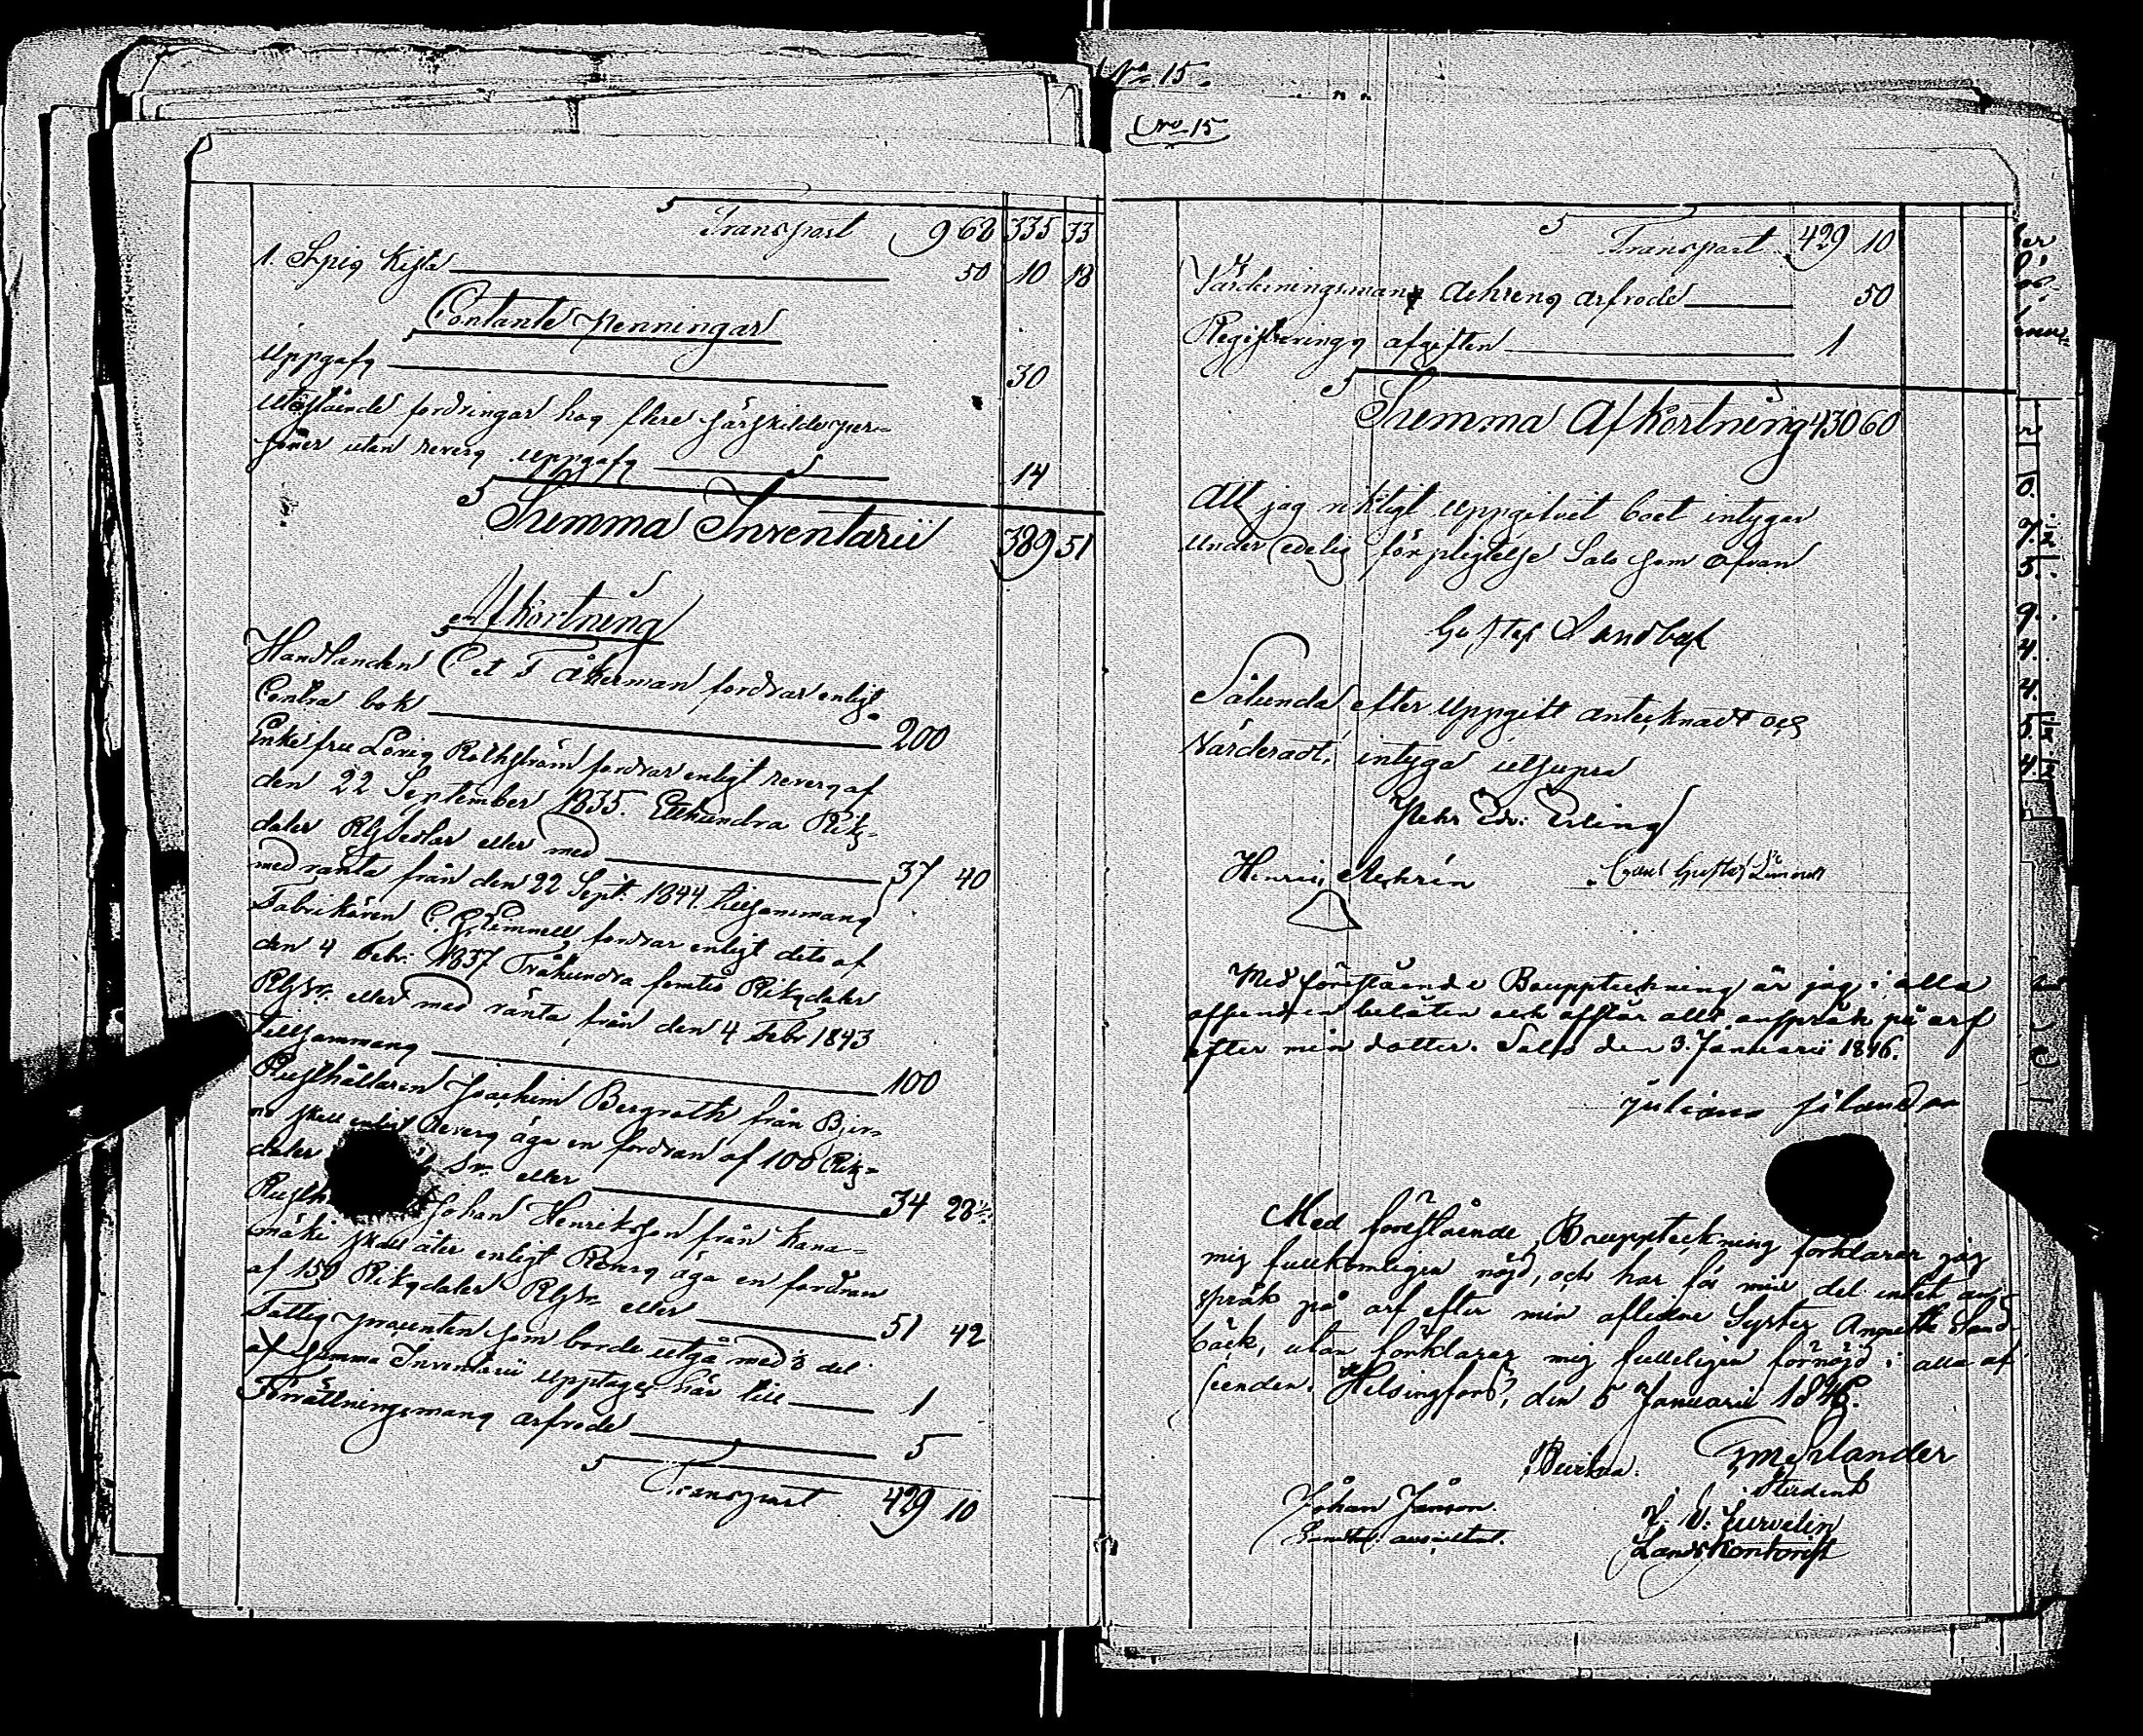 Transport 960 335 33
1. Spis Kista 50 10 18
Contante penningar
Uppgafs 30
Utestående fordringar hos flere särskilde per-
soner utan revers uppgafs 14
Summa Inventarii 389 51
Afkortning
Handlanden C et F Åkerman fordrar enligt
Contra bok 200
Enkefru Lovis Rothström fordrar enligt revers af
den 22 September 1835. Etthundra Riks-
daler RGSedlar eller med 37 40
med ränta från den 22 Sept. 1844. tillsammans
Fabrikören fordrar enligt dito af
den 4 Febr: 1837 Tråhundra femtio Riksdaler
RGSr. eller med ränta från den 4 Febr 1843
tillsammans 100
Rusthållaren Joachim Bergroth från Bjer-
no skall enligt Revers äga en fordran af 100 Riks-
daler Sr. eller 34 28
Johan Henriksson från Kana-
mäki skall åter enligt Revers äga en fordran
af 150 Riksdaler RGSr eller 51 42
Fattig procenten som borde utgå med del
af Summa Inventarii upptages här till 1
Förrättningsmans arfvode 5
Transport 429 10
No 15.
No 15
Transport 429 10
Värderingsmans Aehrens arfvode 50
Registrerings afgiften 1
Summa Afkortning 430 60
Att jag riktigt uppgifvit boet intygar
under edelig förpligtelse Salo som ofvan
Gustaf Sandbäck
Sålunda efter uppgift antecknadt och
Värderadt, intyga utsupra
Pehr Edv: Erling
Henric Aehrén Carl Gustaf
Med förestående Bouppteckning är jag i alla
afseenden belåten och afstår allt anspråk på arf
efter min dotter. Salo den 3. Januarii 1846.
Juliana
Med förestående Bouppteckning förklarar jag
mig fullkomligen nöjd, och har för min del intet an-
språk på arf efter min aflidne Syster Annette Sand-
bäck, utan förklarar mig fulleligen förnöjd i alla af-
seenden. Helsingfors, den 5 Januarii 1846.
Bevittna:
Student
Johan Jånson
Landskontorist